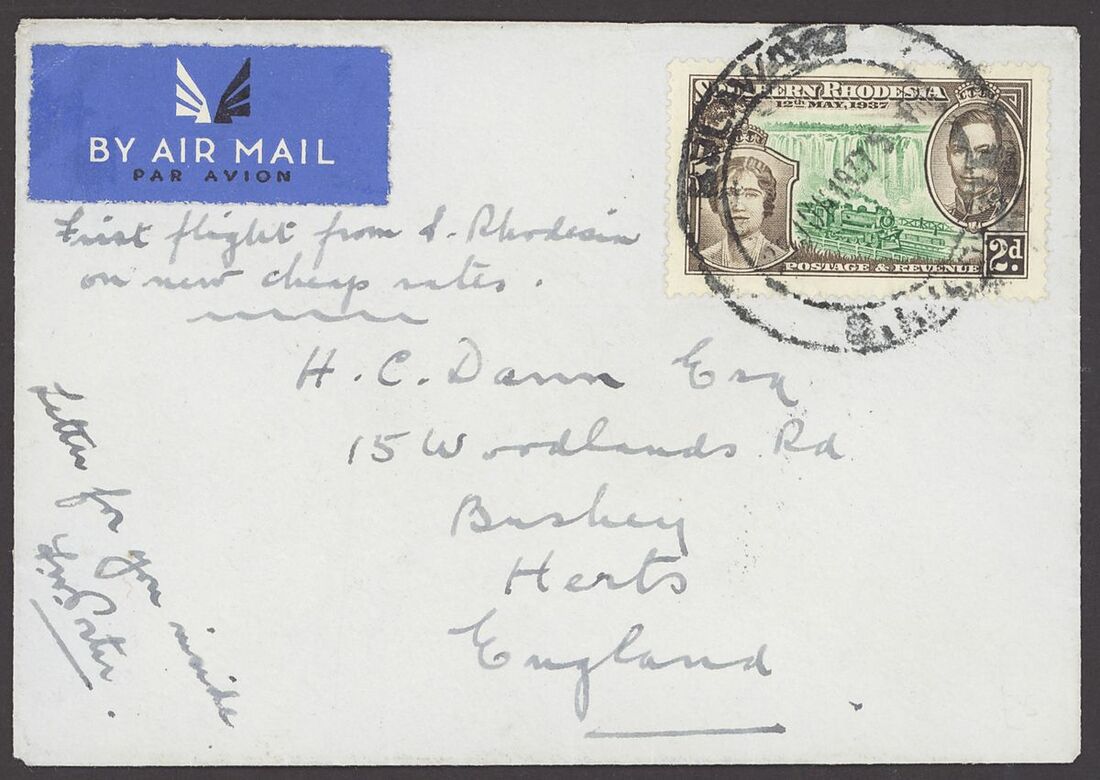 BY AIR MAIL
PAR AVION
SOUTHERN RHODESIA
12th MAY, 1937
2d.
POSTAGE & REVENUE
First flight from S. Rhodesia
on new cheap rates.
H. C. Dann Esq
15 Woodlands Rd
Bushey
Herts
England
Letter for you inside